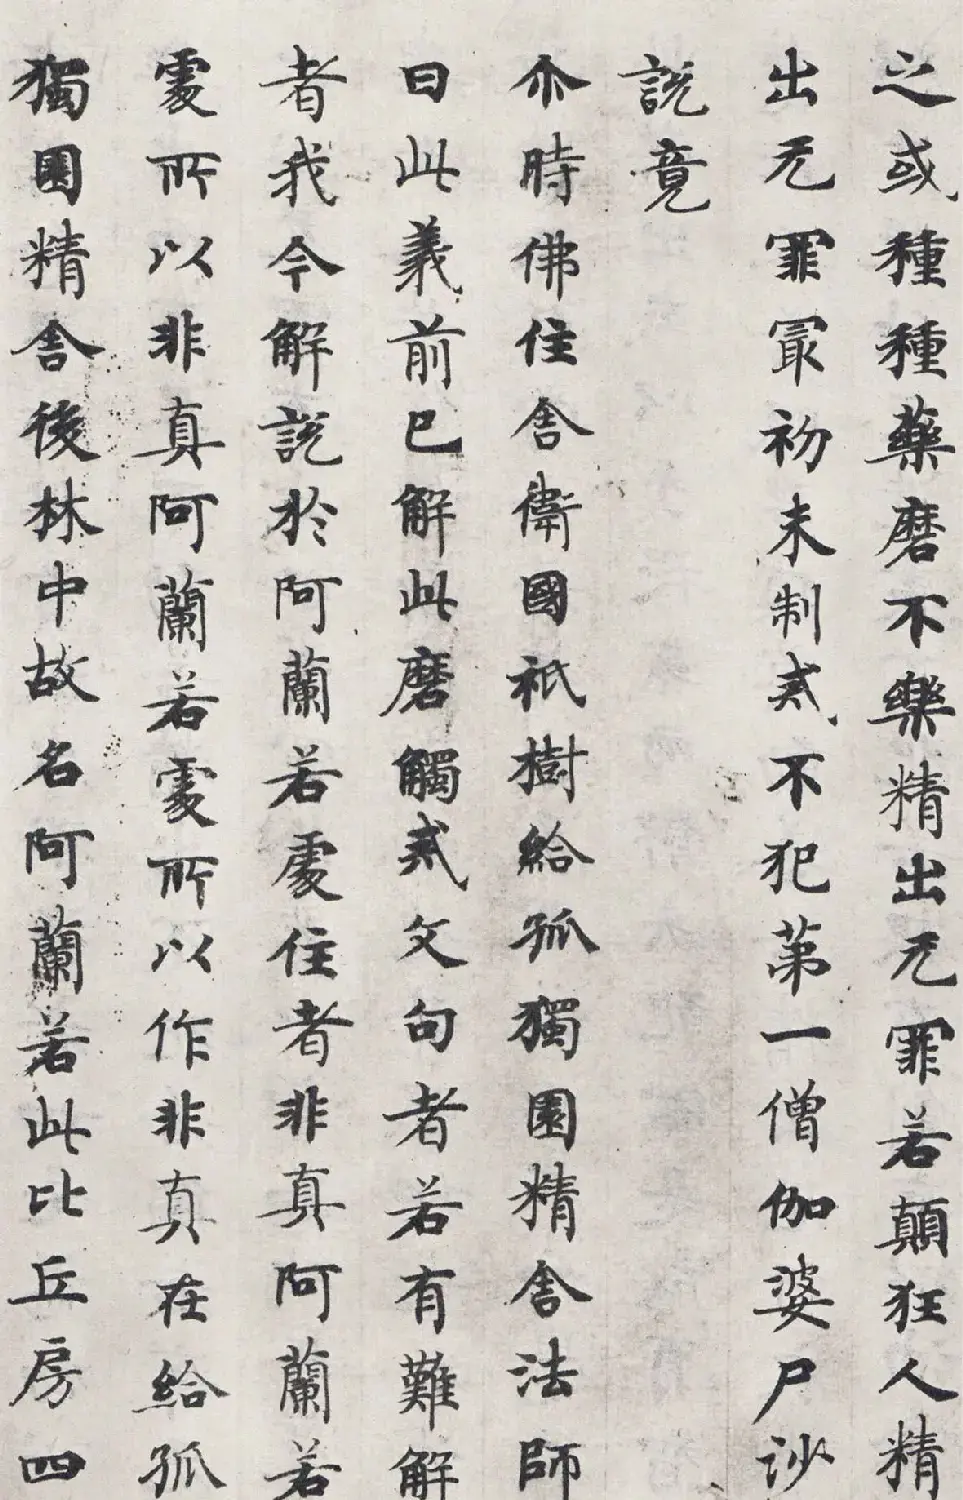 之或種種藥磨不樂精出无罪若顛狂人精
出无罪冣初未制戒不犯第一僧伽婆尸沙
說竟
尒時佛住舍衛國祇樹給孤獨園精舍法師
曰此義前已解此磨觸戒文句者若有難解
者我今解說於阿蘭若處住者非真阿蘭若
處所以非真阿蘭若處所以作非真在給孤
獨園精舍後林中故名阿蘭若此比丘房四